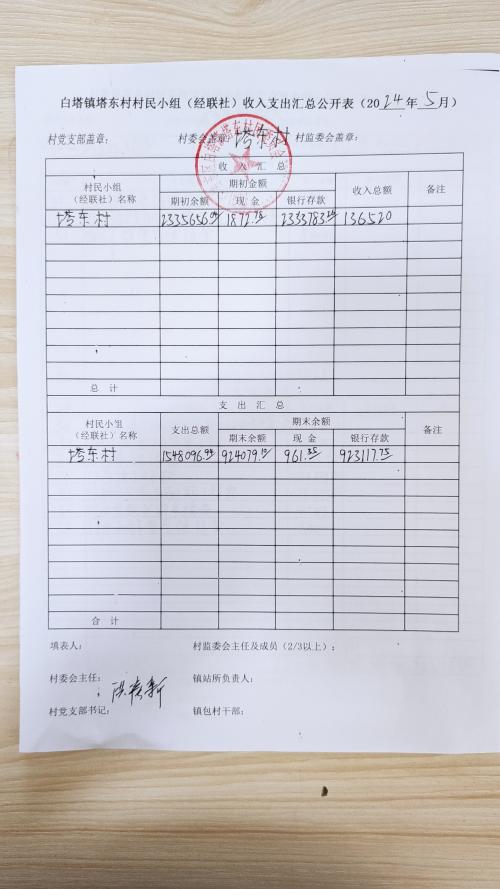 白塔镇塔东村村民小组（经联社）收入支出汇总公开表（2024年5月）
村党支部盖章： 村委会盖章：塔东村 村监委会盖章：
收入汇总
村民小组（经联社）名称 期初金额 收入总额 备注
期初余额 现金 银行存款
塔东村 2335656.04 1872.78 2333783.26 136520
总计
支出汇总
村民小组（经联社）名称 支出总额 期末余额 备注
期末余额 现金 银行存款
塔东村 1548096.94 924079.10 961.35 923117.75
合计
填表人： 村监委会主任及成员（2/3以上）：
村委会主任： 镇站所负责人：
村党支部书记： 镇包村干部：